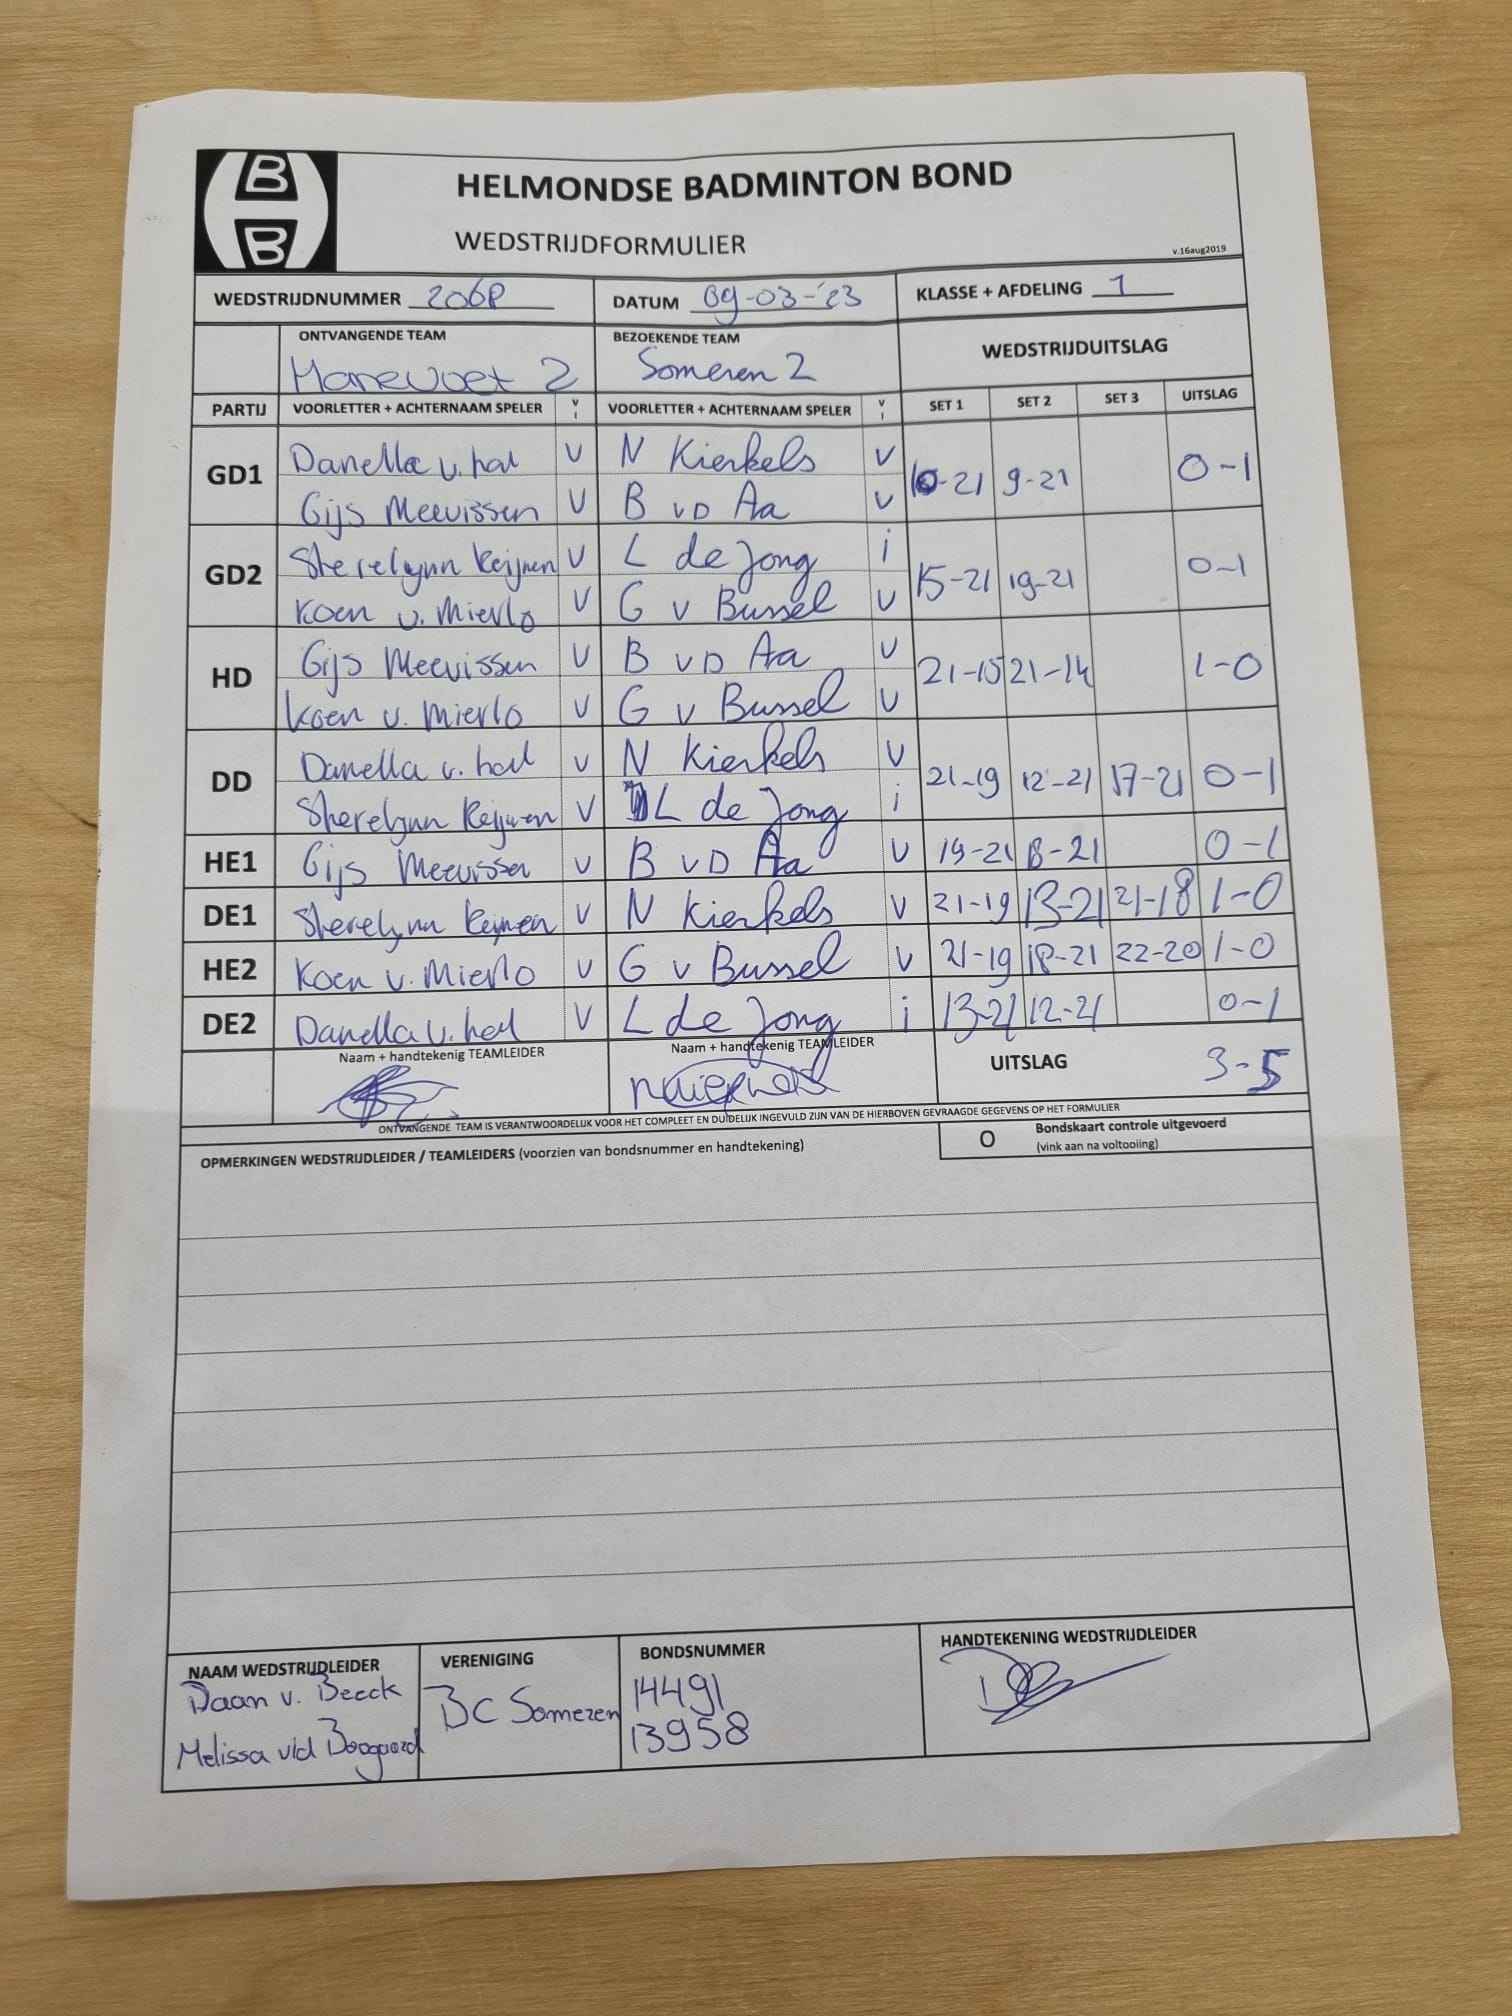 B
B
HELMONDSE BADMINTON BOND
WEDSTRIJDFORMULIER
v.16aug2019
WEDSTRIJDNUMMER 2068 DATUM 09-03-'23 KLASSE + AFDELING 1
ONTVANGENDE TEAM BEZOEKENDE TEAM WEDSTRIJDUITSLAG
Hanevoet 2 Someren 2
PARTIJ VOORLETTER + ACHTERNAAM SPELER V I VOORLETTER + ACHTERNAAM SPELER V I SET 1 SET 2 SET 3 UITSLAG
GD1 Danella v. hal V N Kierkels V 10-21 9-21 0-1
Gijs Meevissen V B vD Aa V
GD2 Sherelynn Keijnen V L de Jong i 15-21 19-21 0-1
Koen v. Mierlo V G v Bussel V
HD Gijs Meevissen V B vD Aa V 21-15 21-14 1-0
Koen v. Mierlo V G v Bussel V
DD Danella v. hal V N Kierkels V 21-19 12-21 17-21 0-1
Sherelynn Keijnen V L de Jong i
HE1 Gijs Meevissen V B vD Aa V 19-21 8-21 0-1
DE1 Sherelynn Keijnen V N Kierkels V 21-19 13-21 21-18 1-0
HE2 Koen v. Mierlo V G v Bussel V 21-19 18-21 22-20 1-0
DE2 Danella v. hal V L de Jong i 13-21 12-21 0-1
Naam + handtekenig TEAMLEIDER Naam + handtekenig TEAMLEIDER UITSLAG 3-5
ONTVANGENDE TEAM IS VERANTWOORDELIJK VOOR HET COMPLEET EN DUIDELIJK INGEVULD ZIJN VAN DE HIERBOVEN GEVRAAGDE GEGEVENS OP HET FORMULIER
OPMERKINGEN WEDSTRIJDLEIDER / TEAMLEIDERS (voorzien van bondsnummer en handtekening) O Bondskaart controle uitgevoerd
(vink aan na voltooiing)
NAAM WEDSTRIJDLEIDER VERENIGING BONDSNUMMER HANDTEKENING WEDSTRIJDLEIDER
Daan v. Beeck BC Someren 14491
Melissa v/d Boogaard 13958